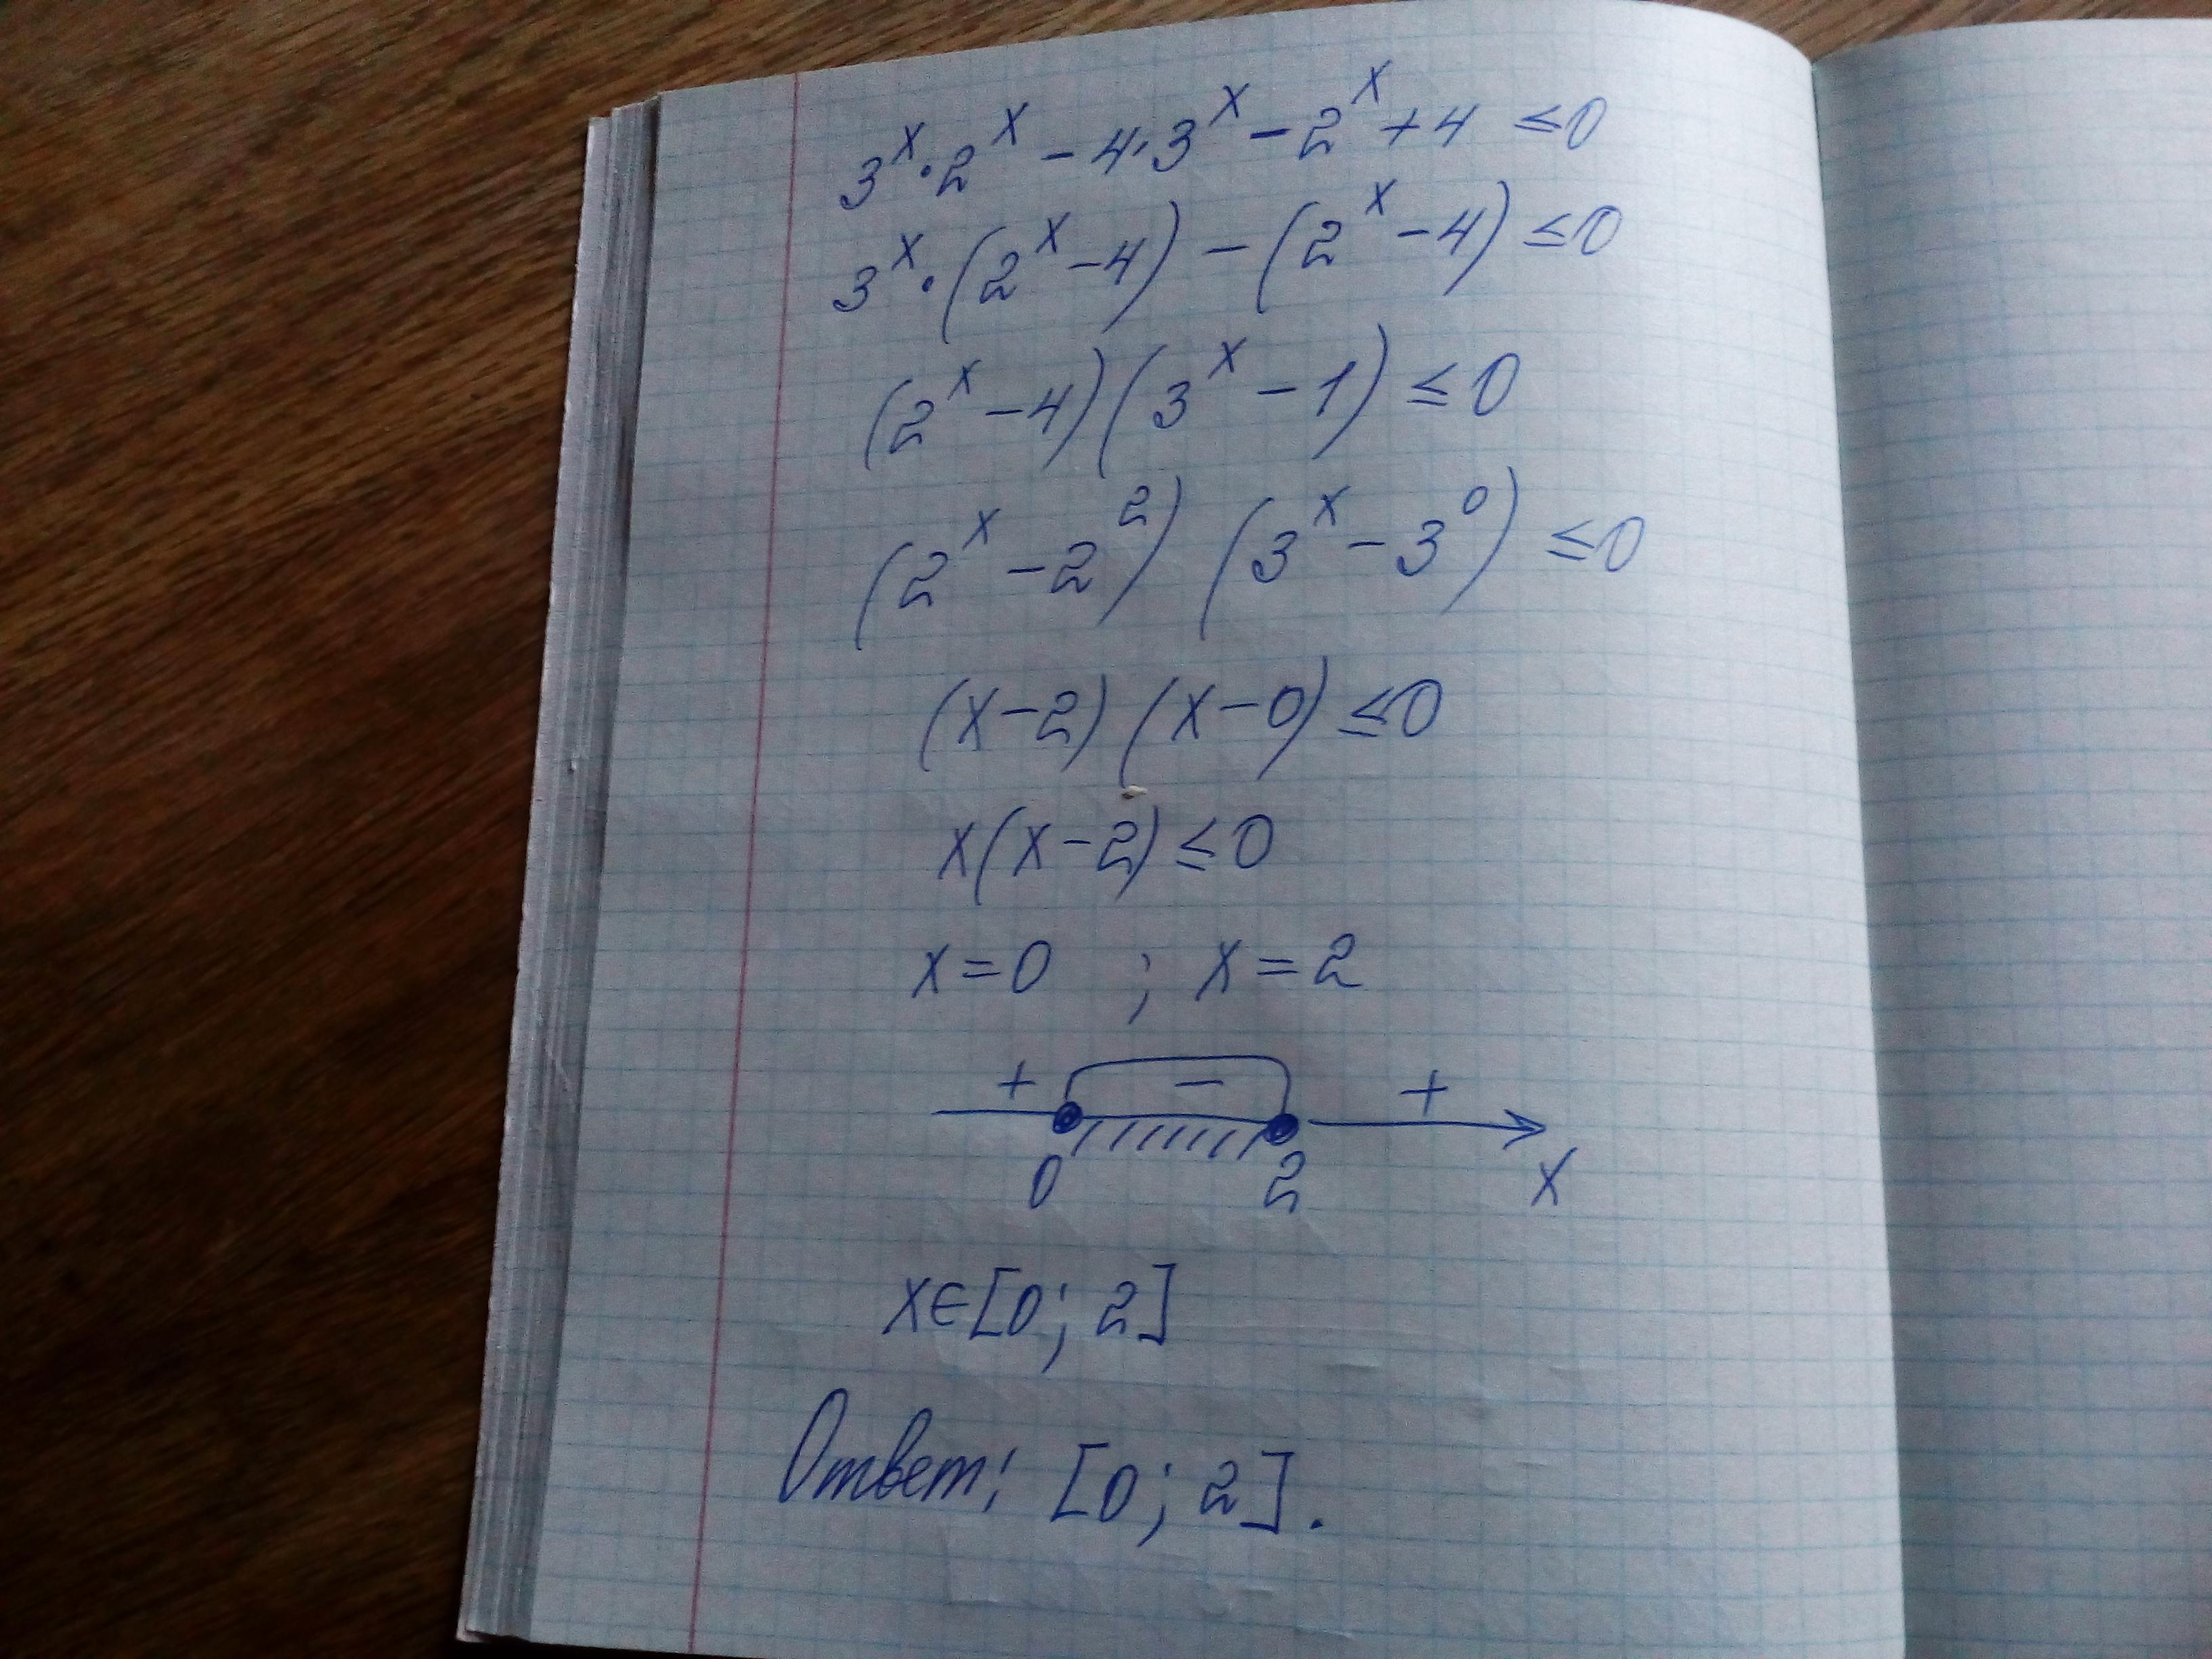 3^x · 2^x - 4 · 3^x - 2^x + 4 ≤ 0
3^x · (2^x - 4) - (2^x - 4) ≤ 0
(2^x - 4)(3^x - 1) ≤ 0
(2^x - 2^2) (3^x - 3^0) ≤ 0
(x - 2) (x - 0) ≤ 0
x(x - 2) ≤ 0
x = 0 ; x = 2
+ - +
0 2 x
x ∈ [0; 2]
Ответ: [0; 2].